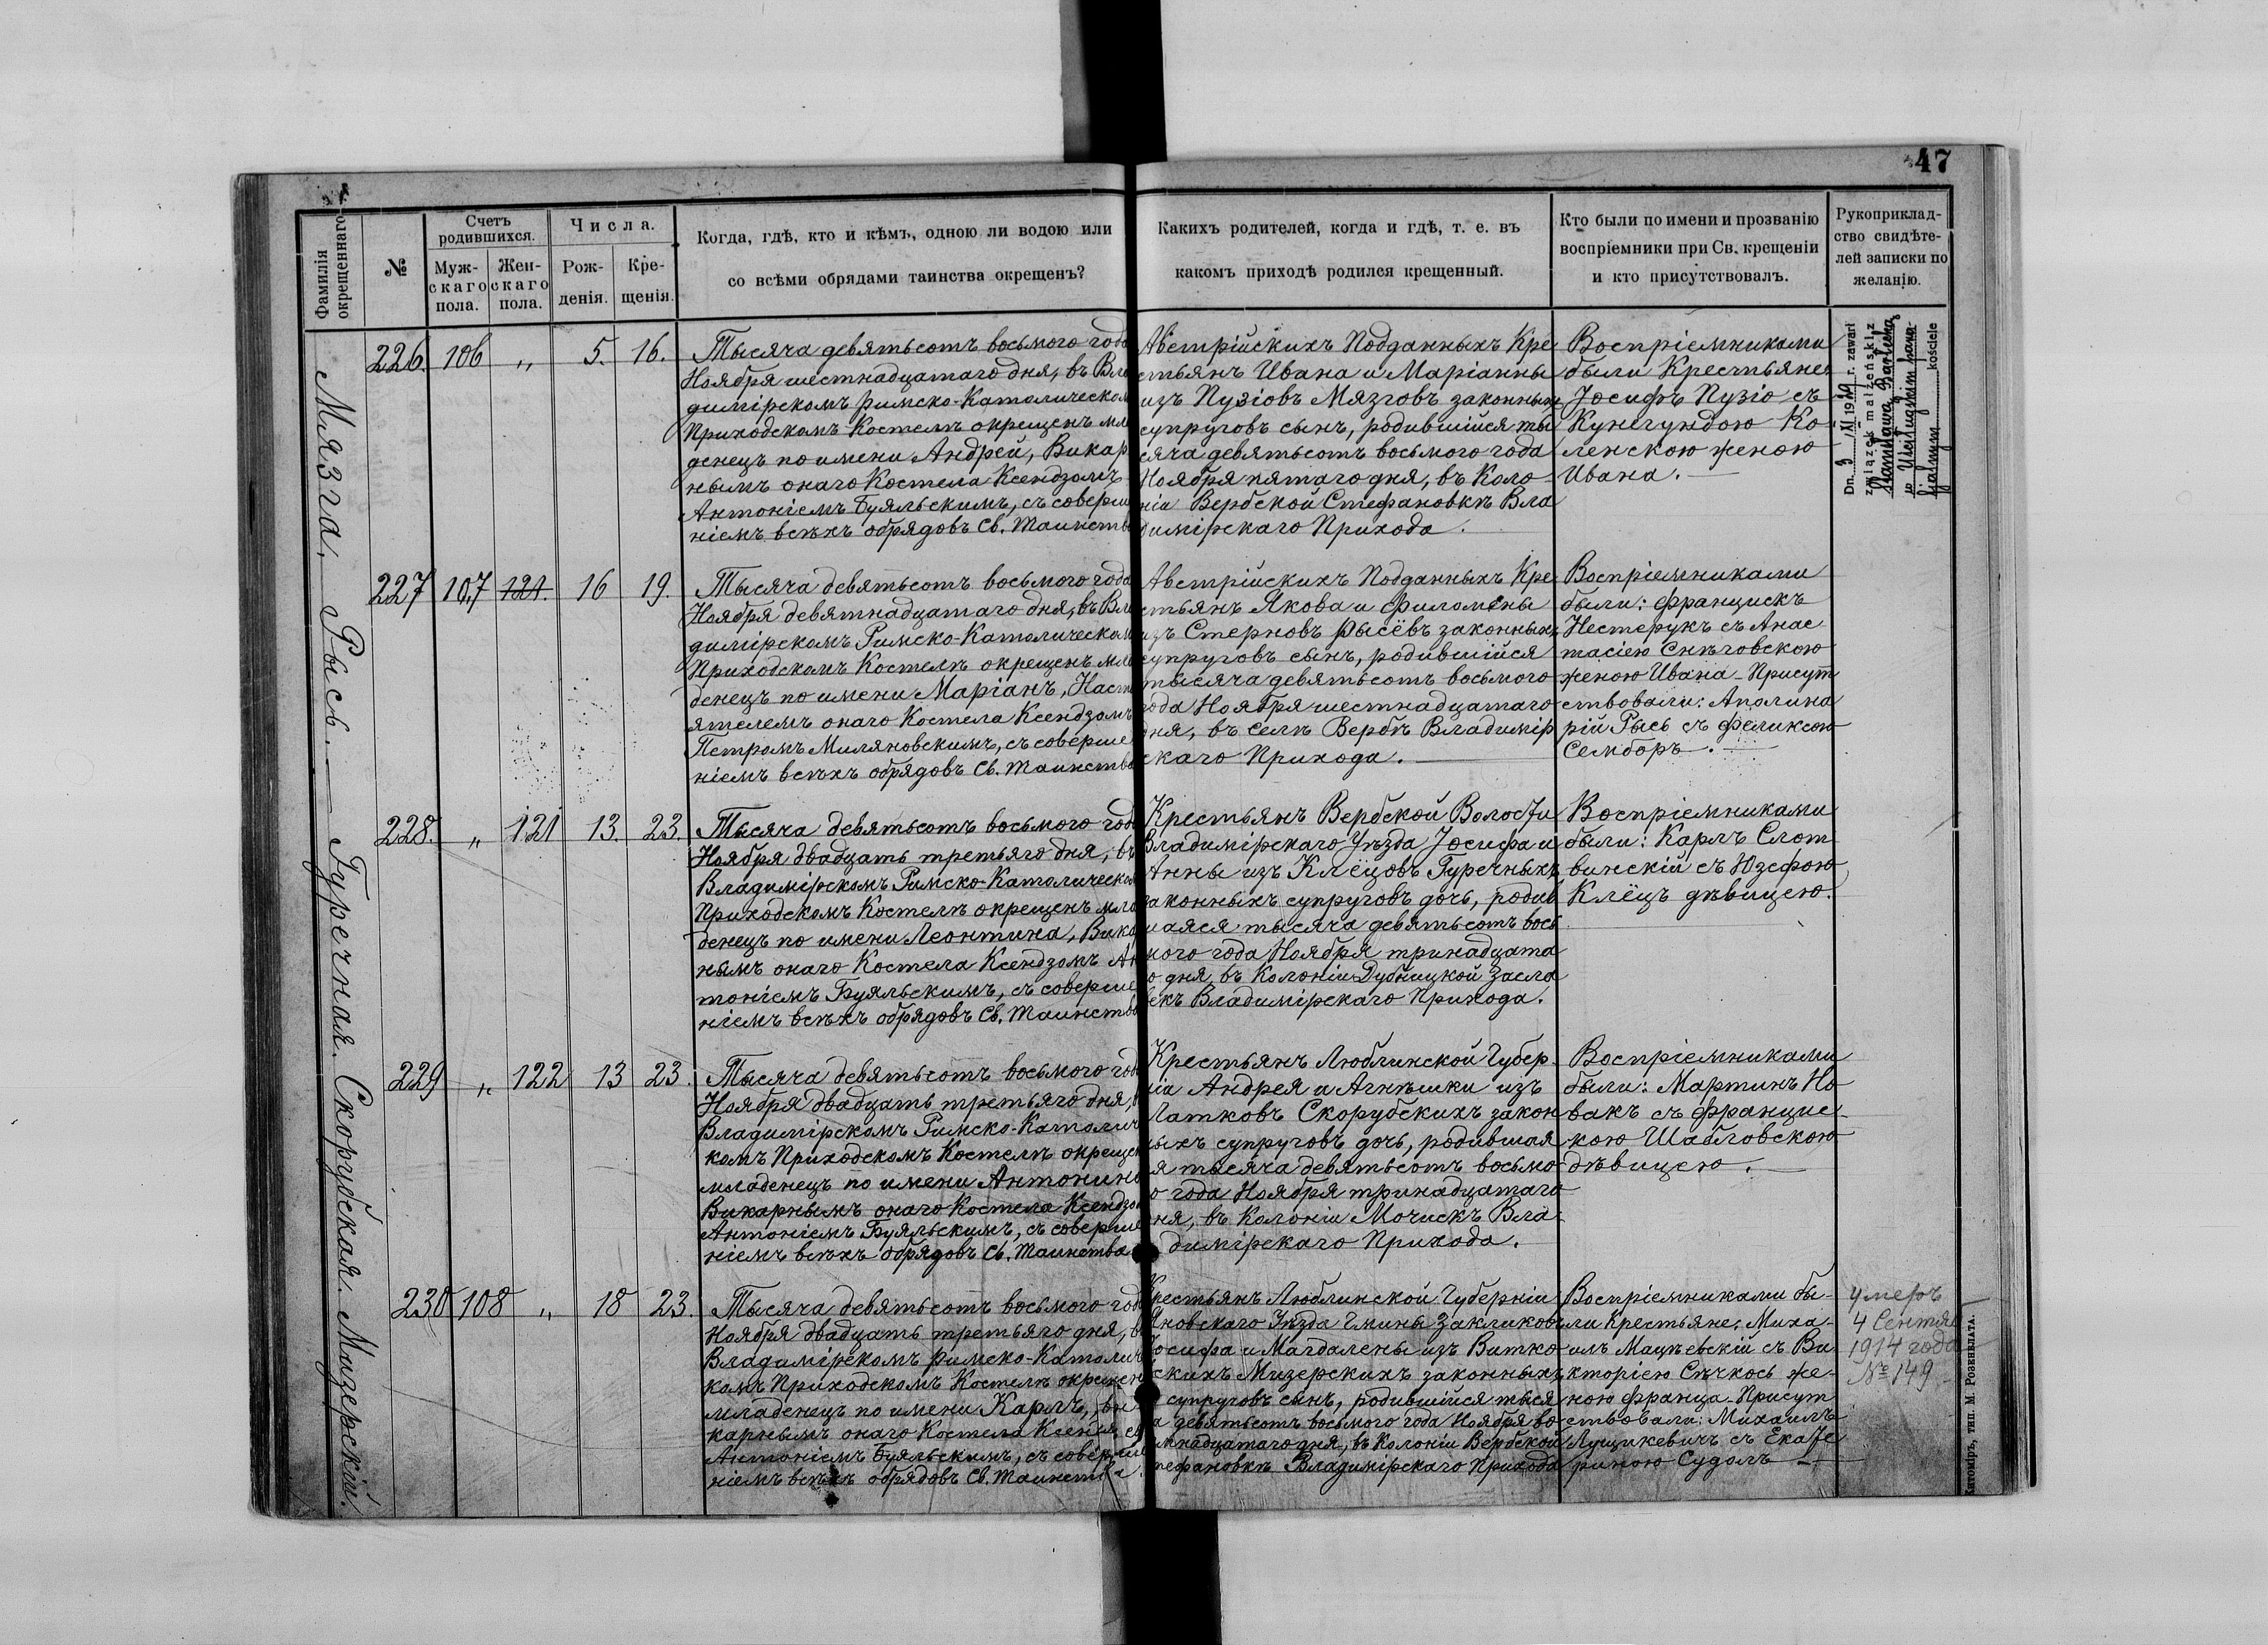 47
Фамилія окрещеннаго
№
Счетъ родившихся.
Муж-скаго пола.
Жен-скаго пола.
Числа.
Рож-денія.
Кре-щенія.
Когда, гдѣ, кто и кѣмъ, одною ли водою или
со всѣми обрядами таинства окрещенъ?
Какихъ родителей, когда и гдѣ, т. е. въ
какомъ приходѣ родился крещенный.
Кто были по имени и прозванію
воспріемники при Св. крещеніи
и кто присутствовалъ.
Рукоприклад-
ство свидѣте-
лей записки по
желанію.
Мязга. — Рысь. — Гуречная. Скорубская. Мизерскій.
226. 106 „ 5. 16.
Тысяча девятьсотъ восьмого года
Ноября шестнадцатаго дня, въ Вла
димірскомъ Римско-Католическом
Приходскомъ Костелѣ окрещенъ мла
денецъ по имени Андрей, Викар
нымъ онаго Костела Ксендзомъ
Антоніемъ Буяльскимъ, съ соверше
ніемъ всѣхъ обрядовъ Св. Таинства
Австрійскихъ Подданныхъ Кре
стьянъ Ивана и Маріанны
изъ Пузіовъ Мязговъ законных
супруговъ сынъ, родившійся ты
сяча девятьсотъ восьмого года
Ноября пятаго дня, въ Коло-
ніи Вербской Стефановкѣ Вла
димірскаго Прихода.
Воспріемниками
были Крестьяне
Іосифъ Пузіо съ
Кунегундою Ко-
ленскою женою
Ивана. —
Dn. 3/XI 1929 r. zawarł
związek małżeński z
kościele
227 107 121. 16 19.
Тысяча девятьсотъ восьмого года
Ноября девятнадцатаго дня, въ Вла
димірскомъ Римско-Католическом
Приходскомъ Костелѣ окрещенъ мла
денецъ по имени Маріанъ, Насто
ятелемъ онаго Костела Ксендзомъ
Петромъ Миляновскимъ, съ соверше
ніемъ всѣхъ обрядовъ Св. Таинства
Австрійскихъ Подданныхъ Кре-
стьянъ Якова и Филомены
изъ Стерновъ Рысёвъ законныхъ
супруговъ сынъ, родившійся
тысяча девятьсотъ восьмого
года Ноября шестнадцатаго
дня, въ селѣ Вербѣ Владимір
скаго Прихода. —
Воспріемниками
были: Францискъ
Нестерукъ съ Анас
тасіею Снѣговскою
женою Ивана - Присут
ствовали: Аполина
рій Рысь съ Феликсою
Семборъ. —
228. „ 121 13. 23.
Тысяча девятьсотъ восьмого год
Ноября двадцать третьяго дня, въ
Владимірскомъ Римско-Католическом
Приходскомъ Костелѣ окрещенъ мла
денецъ по имени Леонтина, Вика
нымъ онаго Костела Ксендзомъ Ан
тоніемъ Буяльскимъ, съ соверше
ніемъ всѣхъ обрядовъ Св. Таинства
Крестьянъ Вербской Волости
Владимірскаго Уѣзда Іосифа и
Анны изъ Клёцовъ Гуречныхъ
законныхъ супруговъ дочь, родив
шаяся тысяча девятьсотъ вось
мого года Ноября тринадцата
го дня, въ Колоніи Дубницкой Засла
векъ Владимірскаго Прихода.
Воспріемниками
были: Карлъ Слот
винскій съ Юзефою
Клёцъ дѣвицею.
229 „ 122 13 23.
Тысяча девятьсотъ восьмого год
Ноября двадцать третьяго дня,
Владимірскомъ Римско-Католич
комъ Приходскомъ Костелѣ окрещен
младенецъ по имени Антонина
Викарнымъ онаго Костела Ксендзо
Антоніемъ Буяльскимъ, съ соверше
ніемъ всѣхъ обрядовъ Св. Таинства
Крестьянъ Люблинской Губер-
ніи Андрея и Агнѣшки изъ
Латковъ Скорубскихъ закон
ныхъ супруговъ дочь, родившая
ся тысяча девятьсотъ восьмо-
го года Ноября тринадцатаго
дня, въ Колоніи Мочискъ Вла-
димірскаго Прихода.
Воспріемниками
были: Мартинъ Но
вакъ съ Францис-
кою Шабловскою
дѣвицею. —
230 108 „ 18 23.
Тысяча девятьсотъ восьмого год
Ноября двадцать третьяго дня, в
Владимірскомъ Римско-Католич
комъ Приходскомъ Костелѣ окрещен
младенецъ по имени Карлъ, Ви
карнымъ онаго Костела Ксендз
Антоніемъ Буяльскимъ, съ соверше
ніемъ всѣхъ обрядовъ Св. Таинства.
Крестьянъ Люблинской Губерніи
Яновскаго Уѣзда Гмины Закликов
Іосифа и Магдалены изъ Витко
скихъ Мизерскихъ законныхъ
супруговъ сынъ, родившійся тыся
ча девятьсотъ восьмого года Ноября во
семнадцатаго дня, въ Колоніи Вербской
Стефановкѣ Владимірскаго Прихода
Воспріемниками бы-
ли Крестьяне, Миха-
илъ Мацѣевскій съ Ви
кторіею Сѣчкось же-
ною Франца - Присут
ствовали: Михаилъ
Лущикевичъ съ Екате
риною Судолъ —
Умеръ
4 Сентяб
1914 года
№ 149
Житомиръ, тип. М. Розенблата.